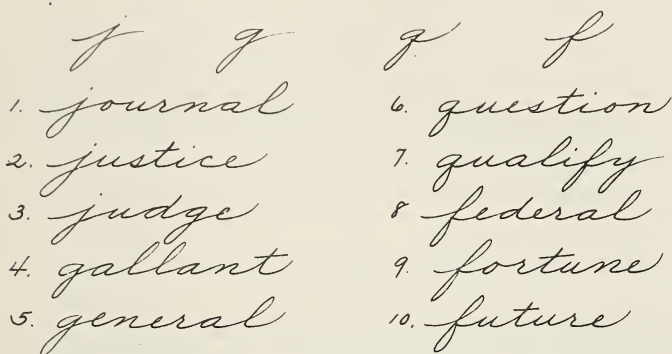 j g q f
1. journal
2. justice
3. judge
4. gallant
5. general
6. question
7. qualify
8 federal
9. fortune
10. future